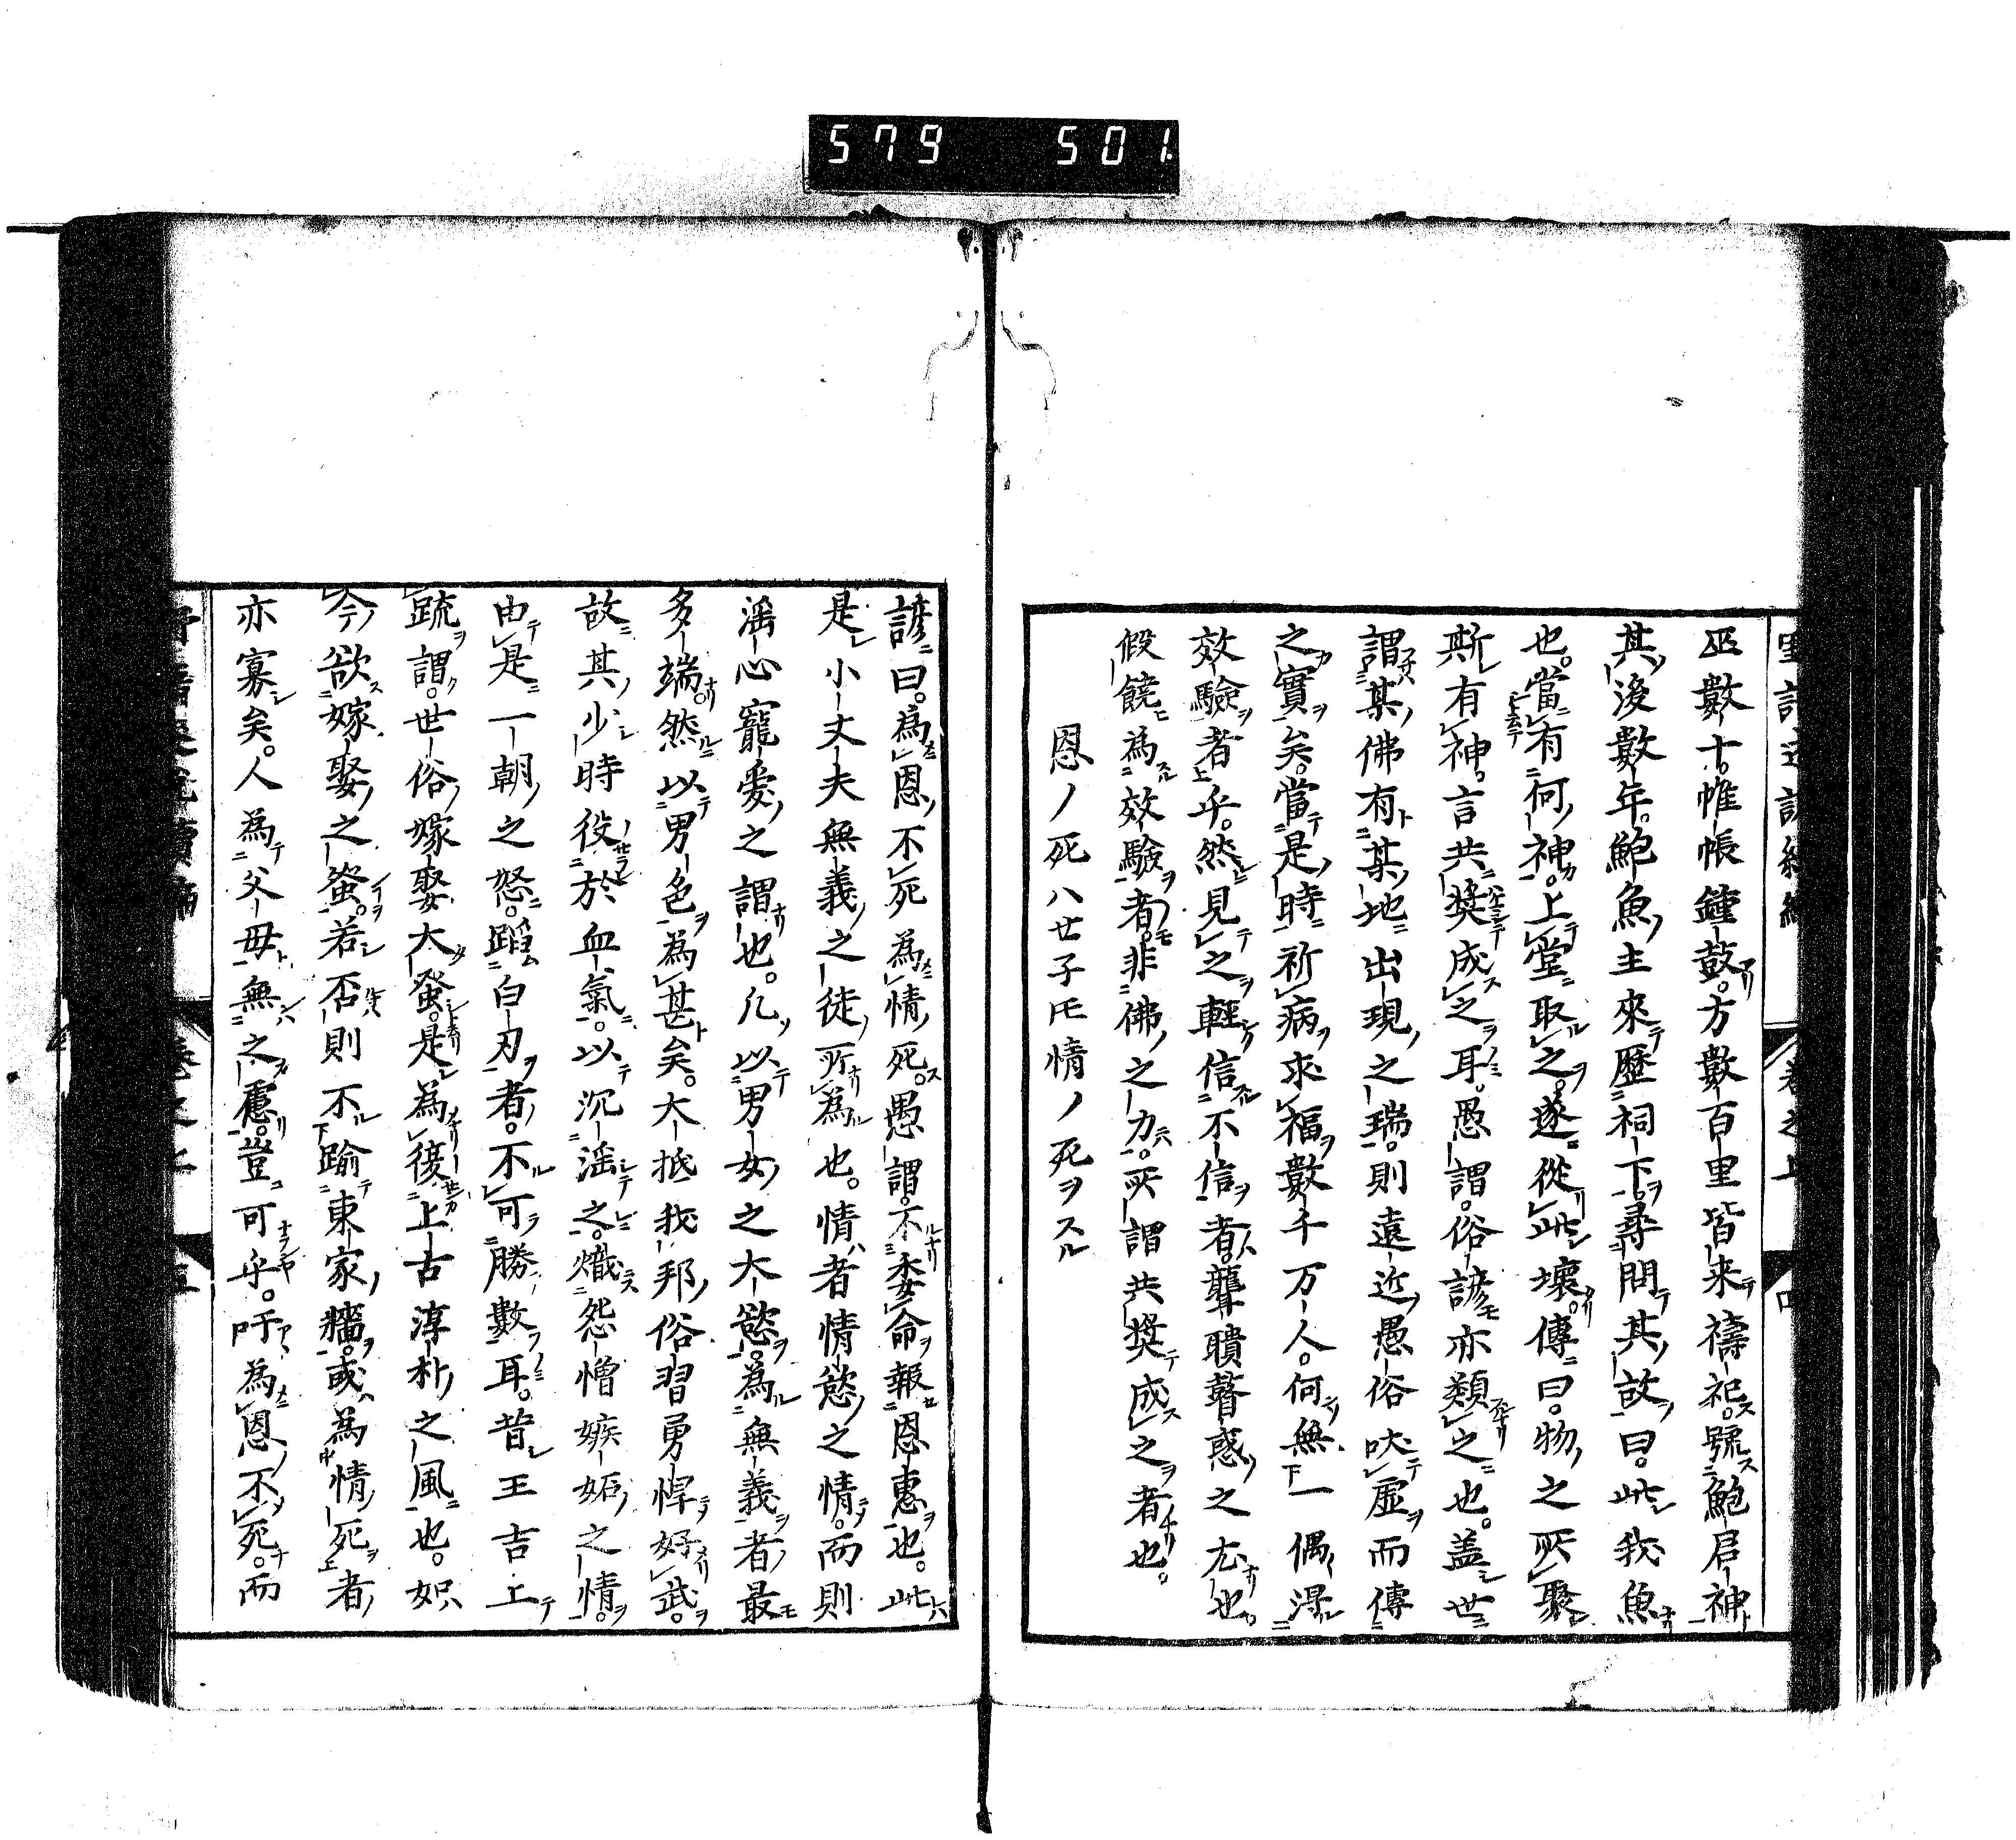 579 501
巫數十。帷帳鐘鼓。方數百里皆来禱祀。號鮑君神
其後數年。鮑魚主來歷祠下。尋問其故曰。此我魚
也。當有何神。上堂取之。遂從此壞。傳曰。物之所聚
斯有神。言共奬成之耳。愚謂。俗諺亦類之也。盖世
謂某佛有某地出現之瑞。則遠近愚俗吠虛而傳
之實矣。當是時祈病求福數千万人。何無一偶得
效驗者乎。然見之輕信不信者。聾聵瞽惑之尤也。
假饒為效驗者。非佛之力。所謂共奬成之者也。
恩ノ死ハセ子𪜈情ノ死ヲスル
諺曰。為恩不死為情死。愚謂。不委命報恩惠也。此
是小丈夫無義之徒所為也。情者情慾之情。而則
滛心寵愛之謂也。凡以男女之大慾。為無義者最
多端。然以男色為甚矣。大抵我邦俗習勇悍好武。
故其少時役於血氣。以沉滛之。熾怨憎嫉妬之情。
由是一朝之怒。蹈白刃者。不可勝數耳。昔王吉上
疏謂。世俗嫁娶大蚤。是為後上古淳朴之風也。如
今欲嫁娶之蚤。若否則不踰東家牆。或為情死者
亦寡矣。人為父母無之慮。豈可乎。吁為恩不死。而